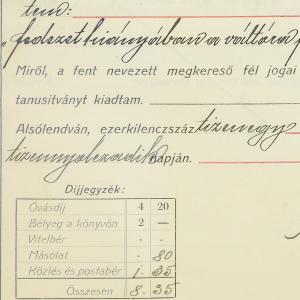 tem:
"fedezet hiányában a váltóra
Miről, a fent nevezett megkereső fél jogai
tanusitványt kiadtam.
Alsólendván, ezerkilenczszáz tizenegy
tizennyolczadik napján.
Dijjegyzék:
Óvásdij 4 20
Bélyeg a könyvön 2 —
Vitelbér . .
Másolat . 80
Közlés és postabér 1. 35
Összesen 8. 35